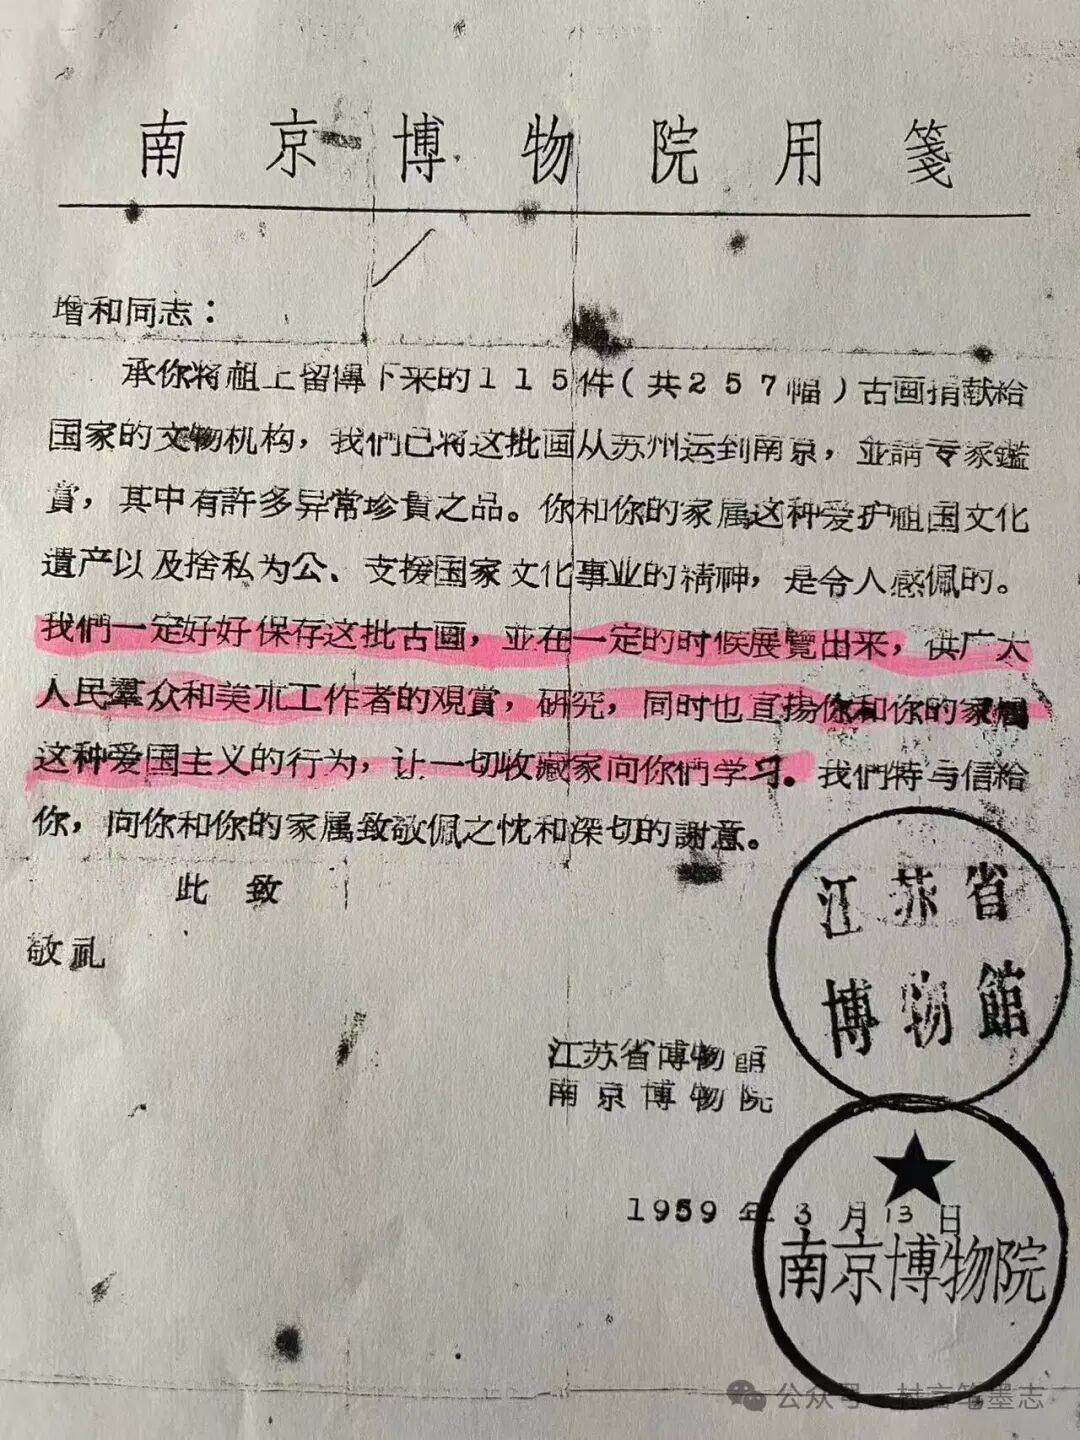 南京博物院用箋
增和同志：
承你将祖上留傳下来的115件(共257幅)古画捐献給
国家的文物机构，我們已将这批画从苏州运到南京，並請专家鑑
賞，其中有許多异常珍貴之品。你和你的家属这种爱护祖国文化
遺产以及捨私为公、支援国家文化事业的精神，是令人感佩的。
我們一定好好保存这批古画，並在一定的时候展覽出来，供广大
人民羣众和美朮工作者的观賞，研究，同时也宣揚你和你的家属
这种爱国主义的行为，让一切收藏家向你們学习。我們特与信給
你，向你和你的家属致敬佩之忱和深切的謝意。
此致
敬礼
江苏省
博物館
江苏省博物館
南京博物院
1959年3月13日
南京博物院
公众号·村言笔墨志